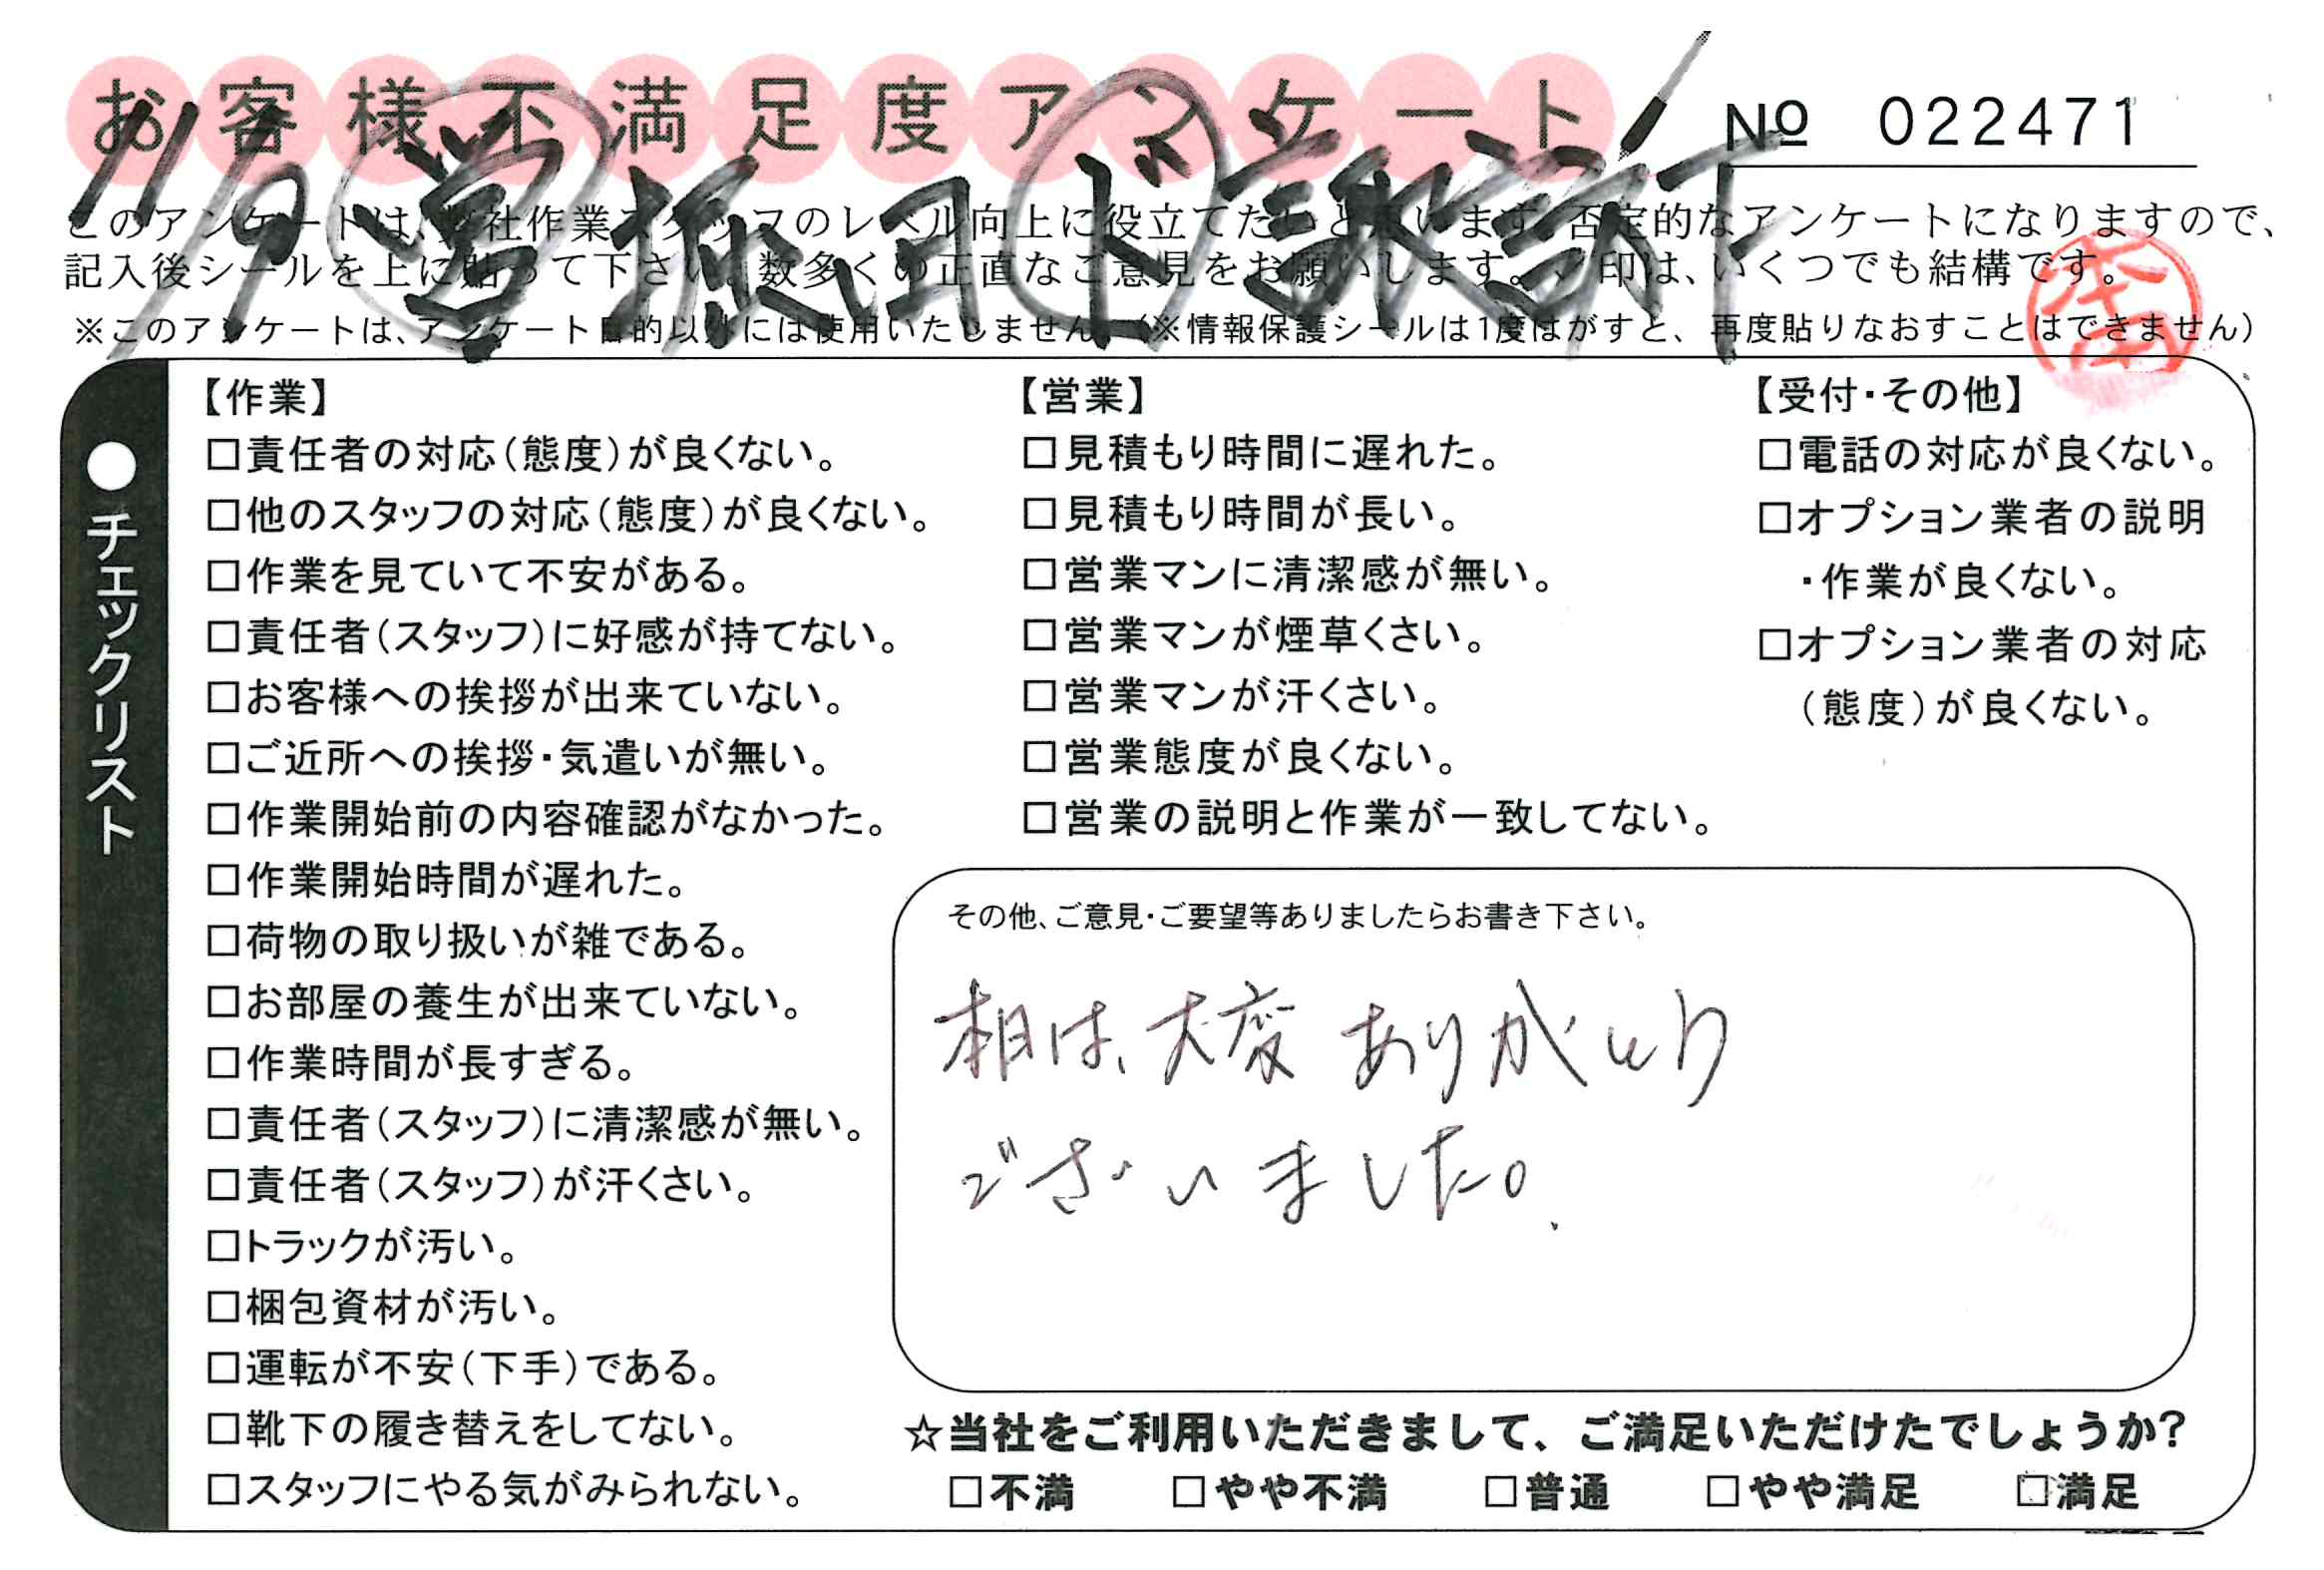 お客様不満足度アンケート
№ 022471
11/9 営 坂田 ド 諏訪下
このアンケートは、弊社作業スタッフのレベル向上に役立てたいと思います。否定的なアンケートになりますので、
記入後シールを上に貼って下さい。数多くの正直なご意見をお願いします。✓印は、いくつでも結構です。
※このアンケートは、アンケート目的以外には使用いたしません。(※情報保護シールは1度はがすと、再度貼りなおすことはできません)
●チェックリスト
【作業】
□責任者の対応(態度)が良くない。
□他のスタッフの対応(態度)が良くない。
□作業を見ていて不安がある。
□責任者(スタッフ)に好感が持てない。
□お客様への挨拶が出来ていない。
□ご近所への挨拶・気遣いが無い。
□作業開始前の内容確認がなかった。
□作業開始時間が遅れた。
□荷物の取り扱いが雑である。
□お部屋の養生が出来ていない。
□作業時間が長すぎる。
□責任者(スタッフ)に清潔感が無い。
□責任者(スタッフ)が汗くさい。
□トラックが汚い。
□梱包資材が汚い。
□運転が不安(下手)である。
□靴下の履き替えをしてない。
□スタッフにやる気がみられない。
【営業】
□見積もり時間に遅れた。
□見積もり時間が長い。
□営業マンに清潔感が無い。
□営業マンが煙草くさい。
□営業マンが汗くさい。
□営業態度が良くない。
□営業の説明と作業が一致してない。
【受付・その他】
□電話の対応が良くない。
□オプション業者の説明
・作業が良くない。
□オプション業者の対応
(態度)が良くない。
その他、ご意見・ご要望等ありましたらお書き下さい。
本日は、大変ありがとう
ございました。
☆当社をご利用いただきまして、ご満足いただけたでしょうか?
□不満 □やや不満 □普通 □やや満足 □満足